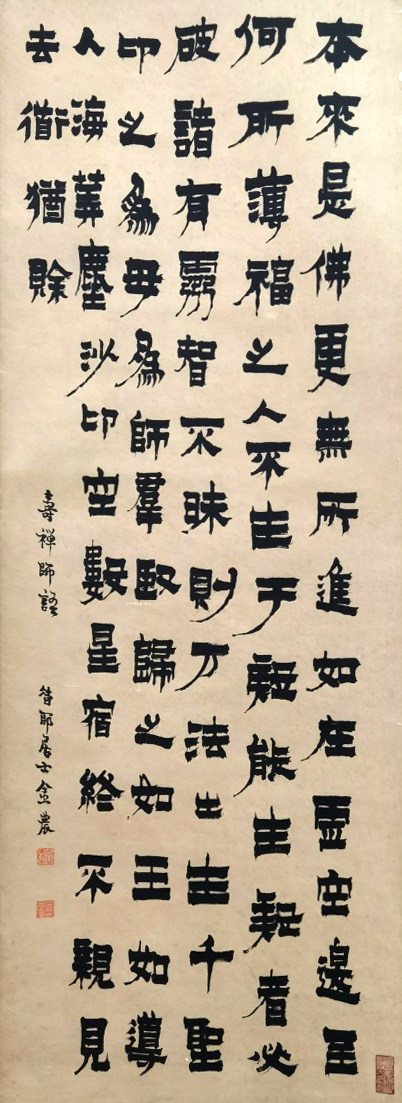 本來是佛更無所進如在虛空邊至
何所薄福之人不生于疑能生疑者必
破諸有靈智不昧則万法出生千聖
印之為母為師羣臣歸之如王如導
人海算塵沙印空數星宿終不親見
去道猶賒
壽禪師語 昔耶居士金農